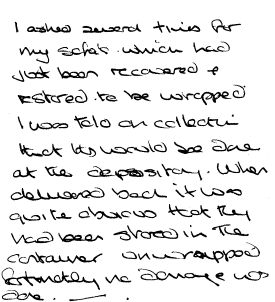 I asked several times for
my sofas which had
just been recovered &
restored to be wrapped
I was told on collection
that this would be done
at the depository. When
delivered back it was
quite obvious that they
had been stored in the
container unwrapped
fortunately no damage was
done.